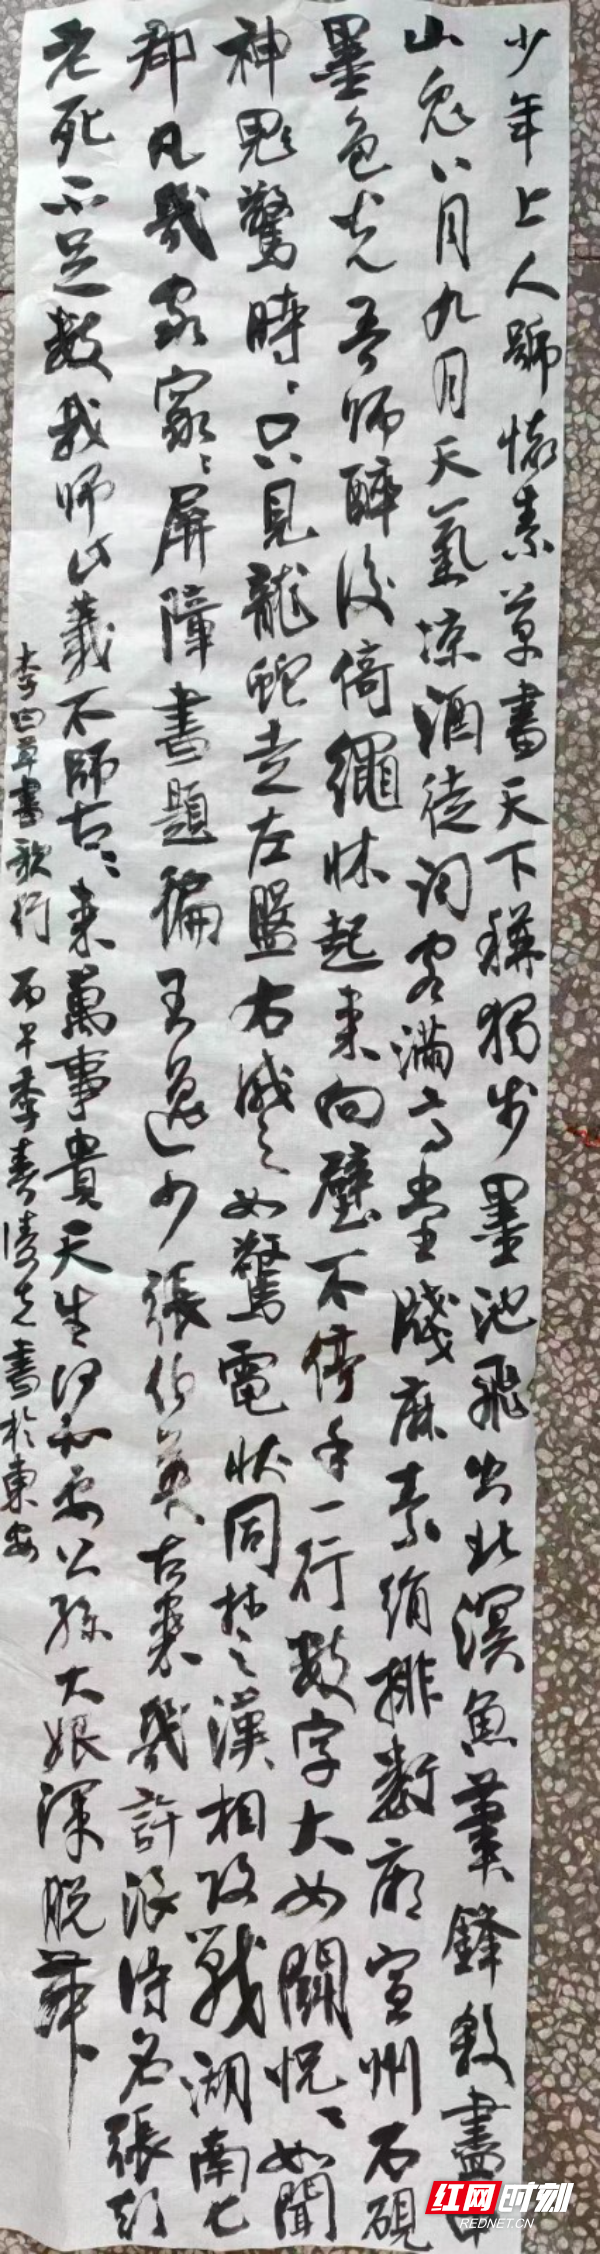 少年上人號懷素草書天下稱獨步墨池飛出北溟魚筆鋒殺盡中
山兔八月九月天氣凉酒徒詞客滿高堂牋麻素絹排數廂宣州石硯
墨色光吾師醉後倚繩床起來向壁不停手一行數字大如鬭恍〻如聞
神鬼驚時〻只見龍蛇走左盤右蹙如驚電狀同楚漢相攻戰湖南七
郡凡幾家家〻屏障書題徧王逸少張伯英古來幾許浪得名張顛
老死不足數我師此義不師古〻來萬事貴天生何必要公孫大娘渾脫舞
李白草書歌行 丙午季春書於東安
红网时刻
REDNET.CN